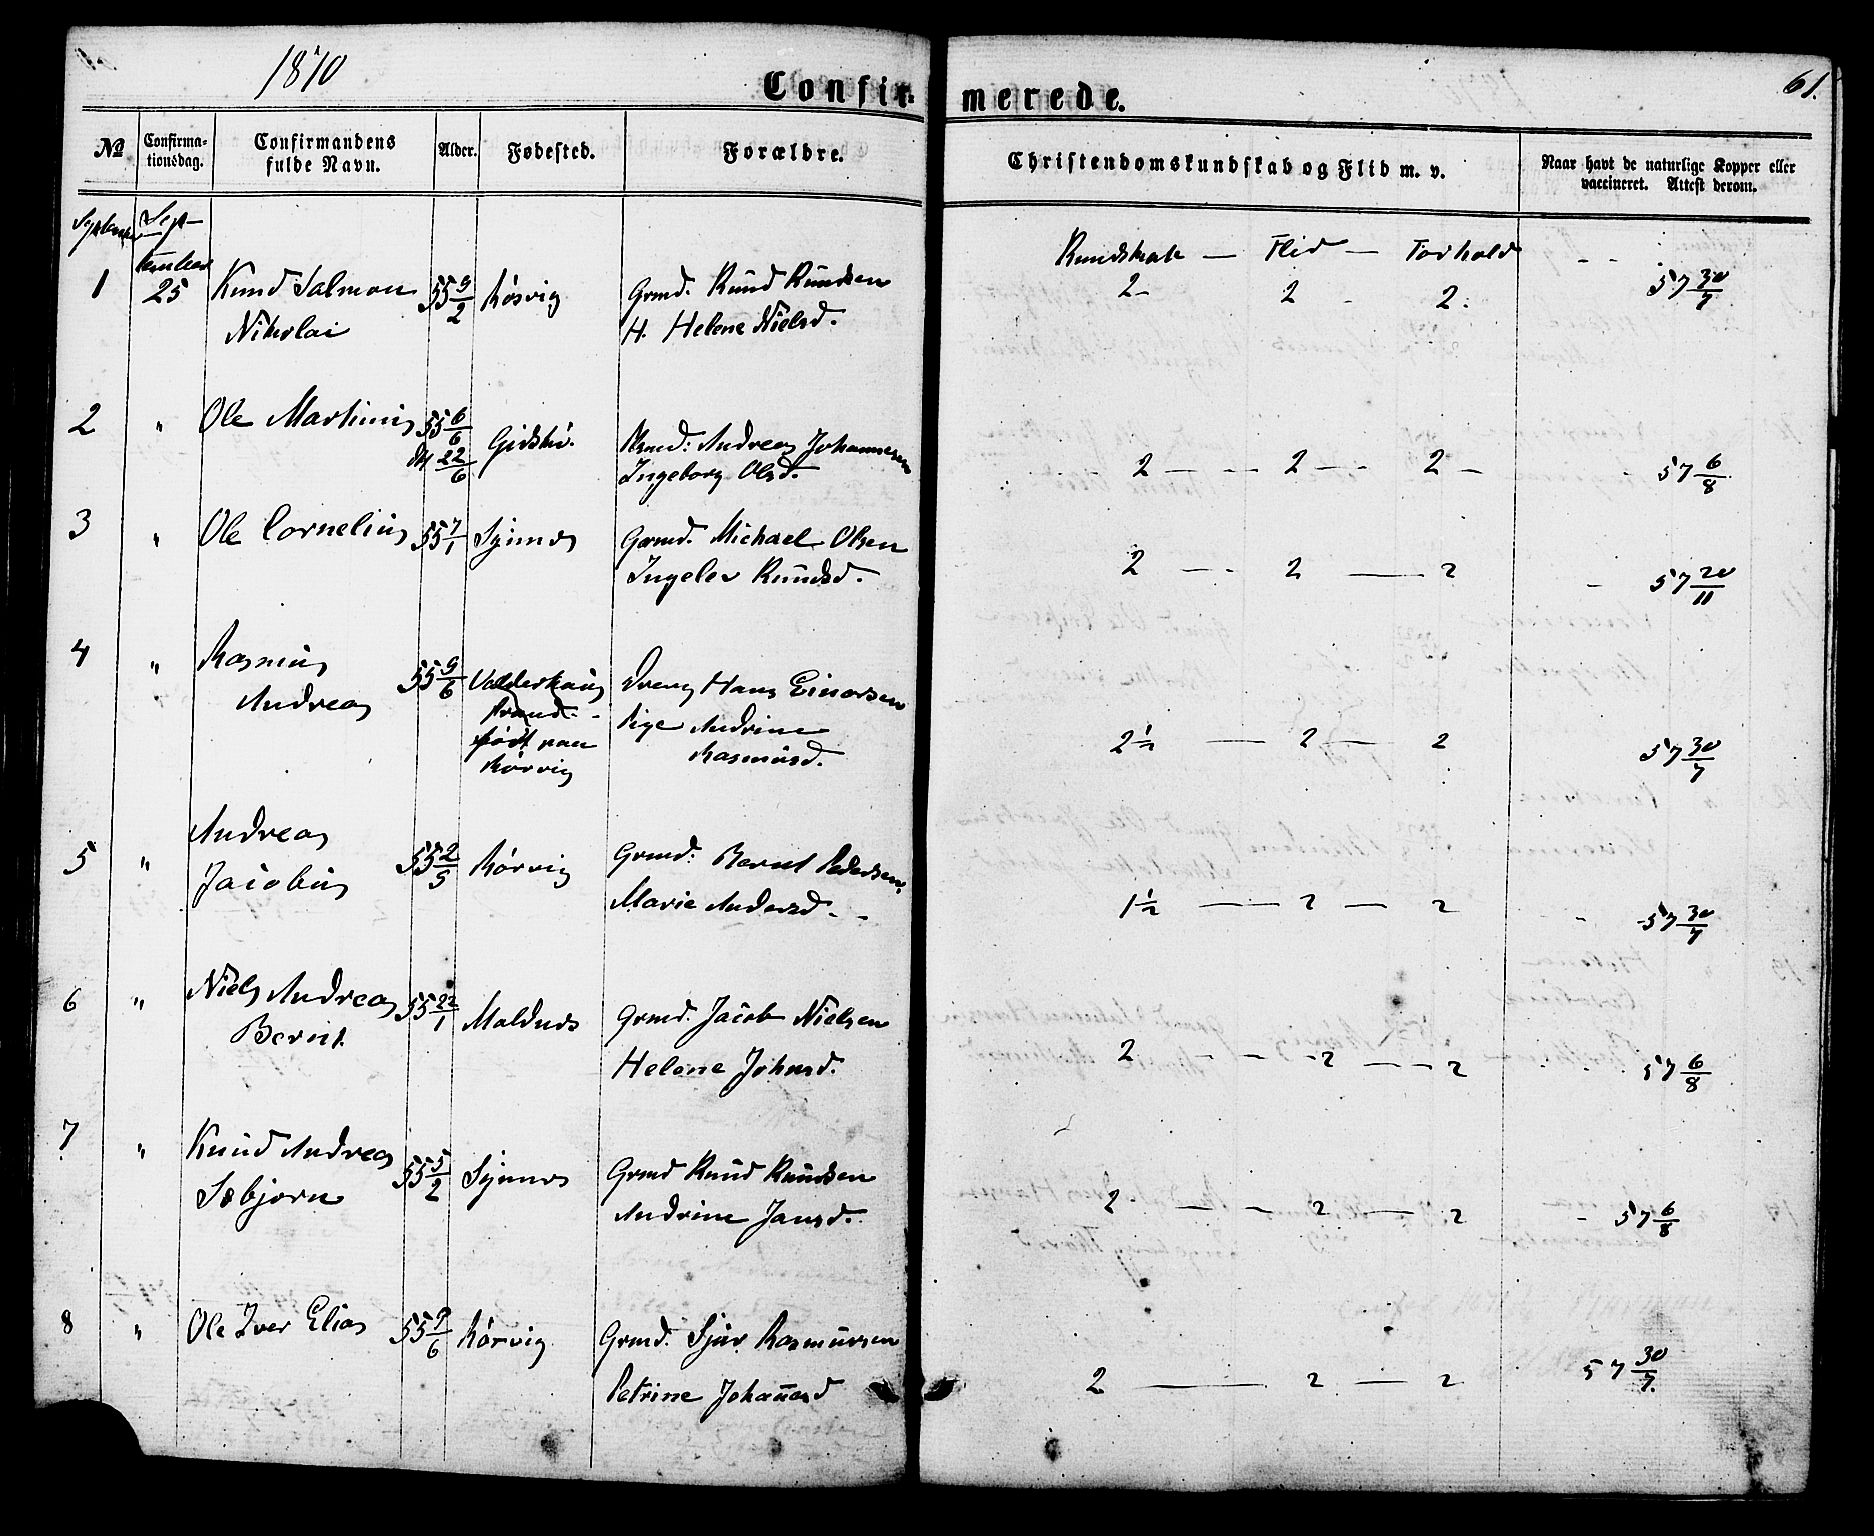 1870
61.
Confir- merede.
No Confirma-tionsdag. Confirmandens fulde Navn. Alder. Fødested. Forældre. Christendomskundskab og Flid m. v. Naar havt de naturlige Kopper eller vaccineret. Attest derom.
September Sept
tember Kundskab — Flid — Forhold
1 25 Knud Salmon 55 9/2 Rørvig Grmd. Knud Knudsen 2 - 2 - 2. 57 30/7
Nikolai H. Helene Nielsd.
2 " Ole Martinus 55 6/6 Gidskø. Andreas Johannesen
22/6 Ingeborg Olsd. 2 — 2 — 2 — 57 6/8
3 " Ole Cornelius 55 7/1 Synnes Grmd. Michael Olsen
Ingelev Knudsd. 2 — 2 — 2 - 57 20/11
4 " Rasmus
Andreas 55 9/6 Valderhaug Dreng Hans Einarsen
strand - Pige Andrine
født paa Rasmusd. 2 1/2 — 2 — 2 57 30/7
Rørvig
5 " Andreas
Jacobus 55 2/5 Rørvig Grmd: Bernt Pedersen
Marie Andersd. - 1 1/2 — 2 — 2 - 57 30/7
6 " Niels Andreas 55 22/1 Moldnes Grmd. Jacob Nielsen
Bernt. Helene Johnsd. 2 - - 2 — 2 57 6/8
7 " Knud Andreas 55 5/2 Synnes Grmd Knud Knudsen
Sæbjørn Andrine Jansd. 2 — 2 — 2 - 57 6/8
8 " Ole Iver Elias 55 9/6 Rørvig Grmd. Sjur Rasmussen
Petrine Johannesd 2 — 2 — 2 57 30/7.